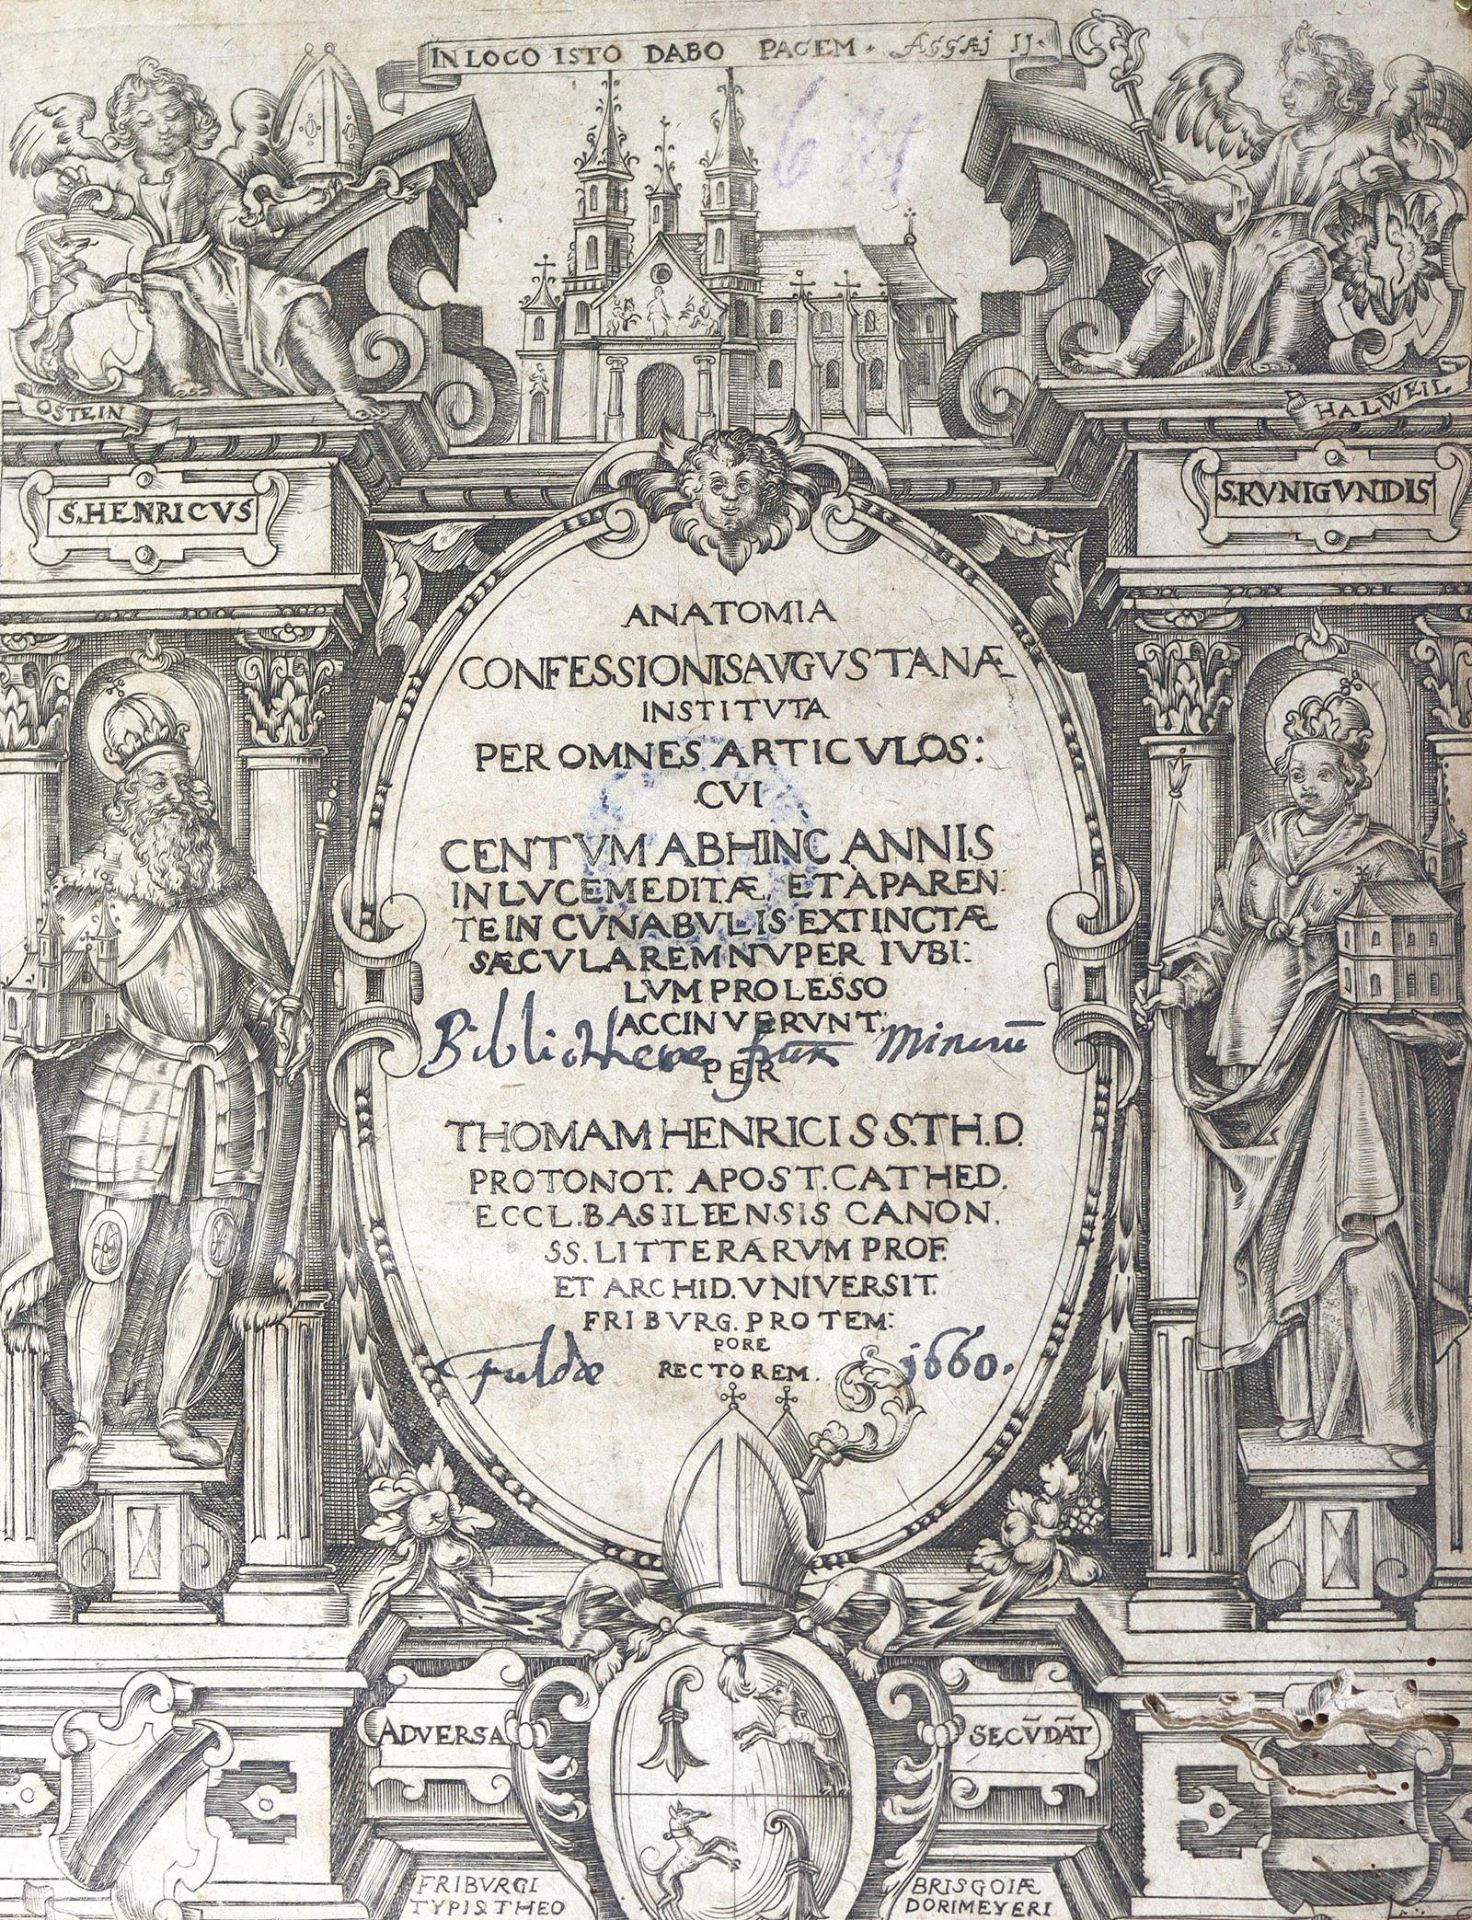 IN LOCO ISTO DABO PACEM. Aggæi II.
OSTEIN
HALWEIL
S. HENRICVS
S. KVNIGVNDIS
ANATOMIA
CONFESSIONIS AVGVSTANÆ
INSTITVTA
PER OMNES ARTICVLOS:
CVI
CENTVM ABHINC ANNIS
IN LVCEM EDITÆ, ET A PAREN:
TE IN CVNABVLIS EXTINCTÆ
SÆCVLAREM NVPER IVBI:
LVM PROLESSO
ACCINVERVNT:
Bibliothece frūm Minorū
PER
THOMAM HENRICI SS.TH.D.
PROTONOT. APOST. CATHED.
ECCL. BASILEENSIS CANON.
SS. LITTERARVM PROF.
ET ARCHID. VNIVERSIT.
FRIBVRG. PRO TEM:
PORE
Fuldæ RECTOREM. 1660.
ADVERSA SECV̄DĀT
FRIBVRGI BRISGOIÆ
TYPIS THEO DORI MEYERI